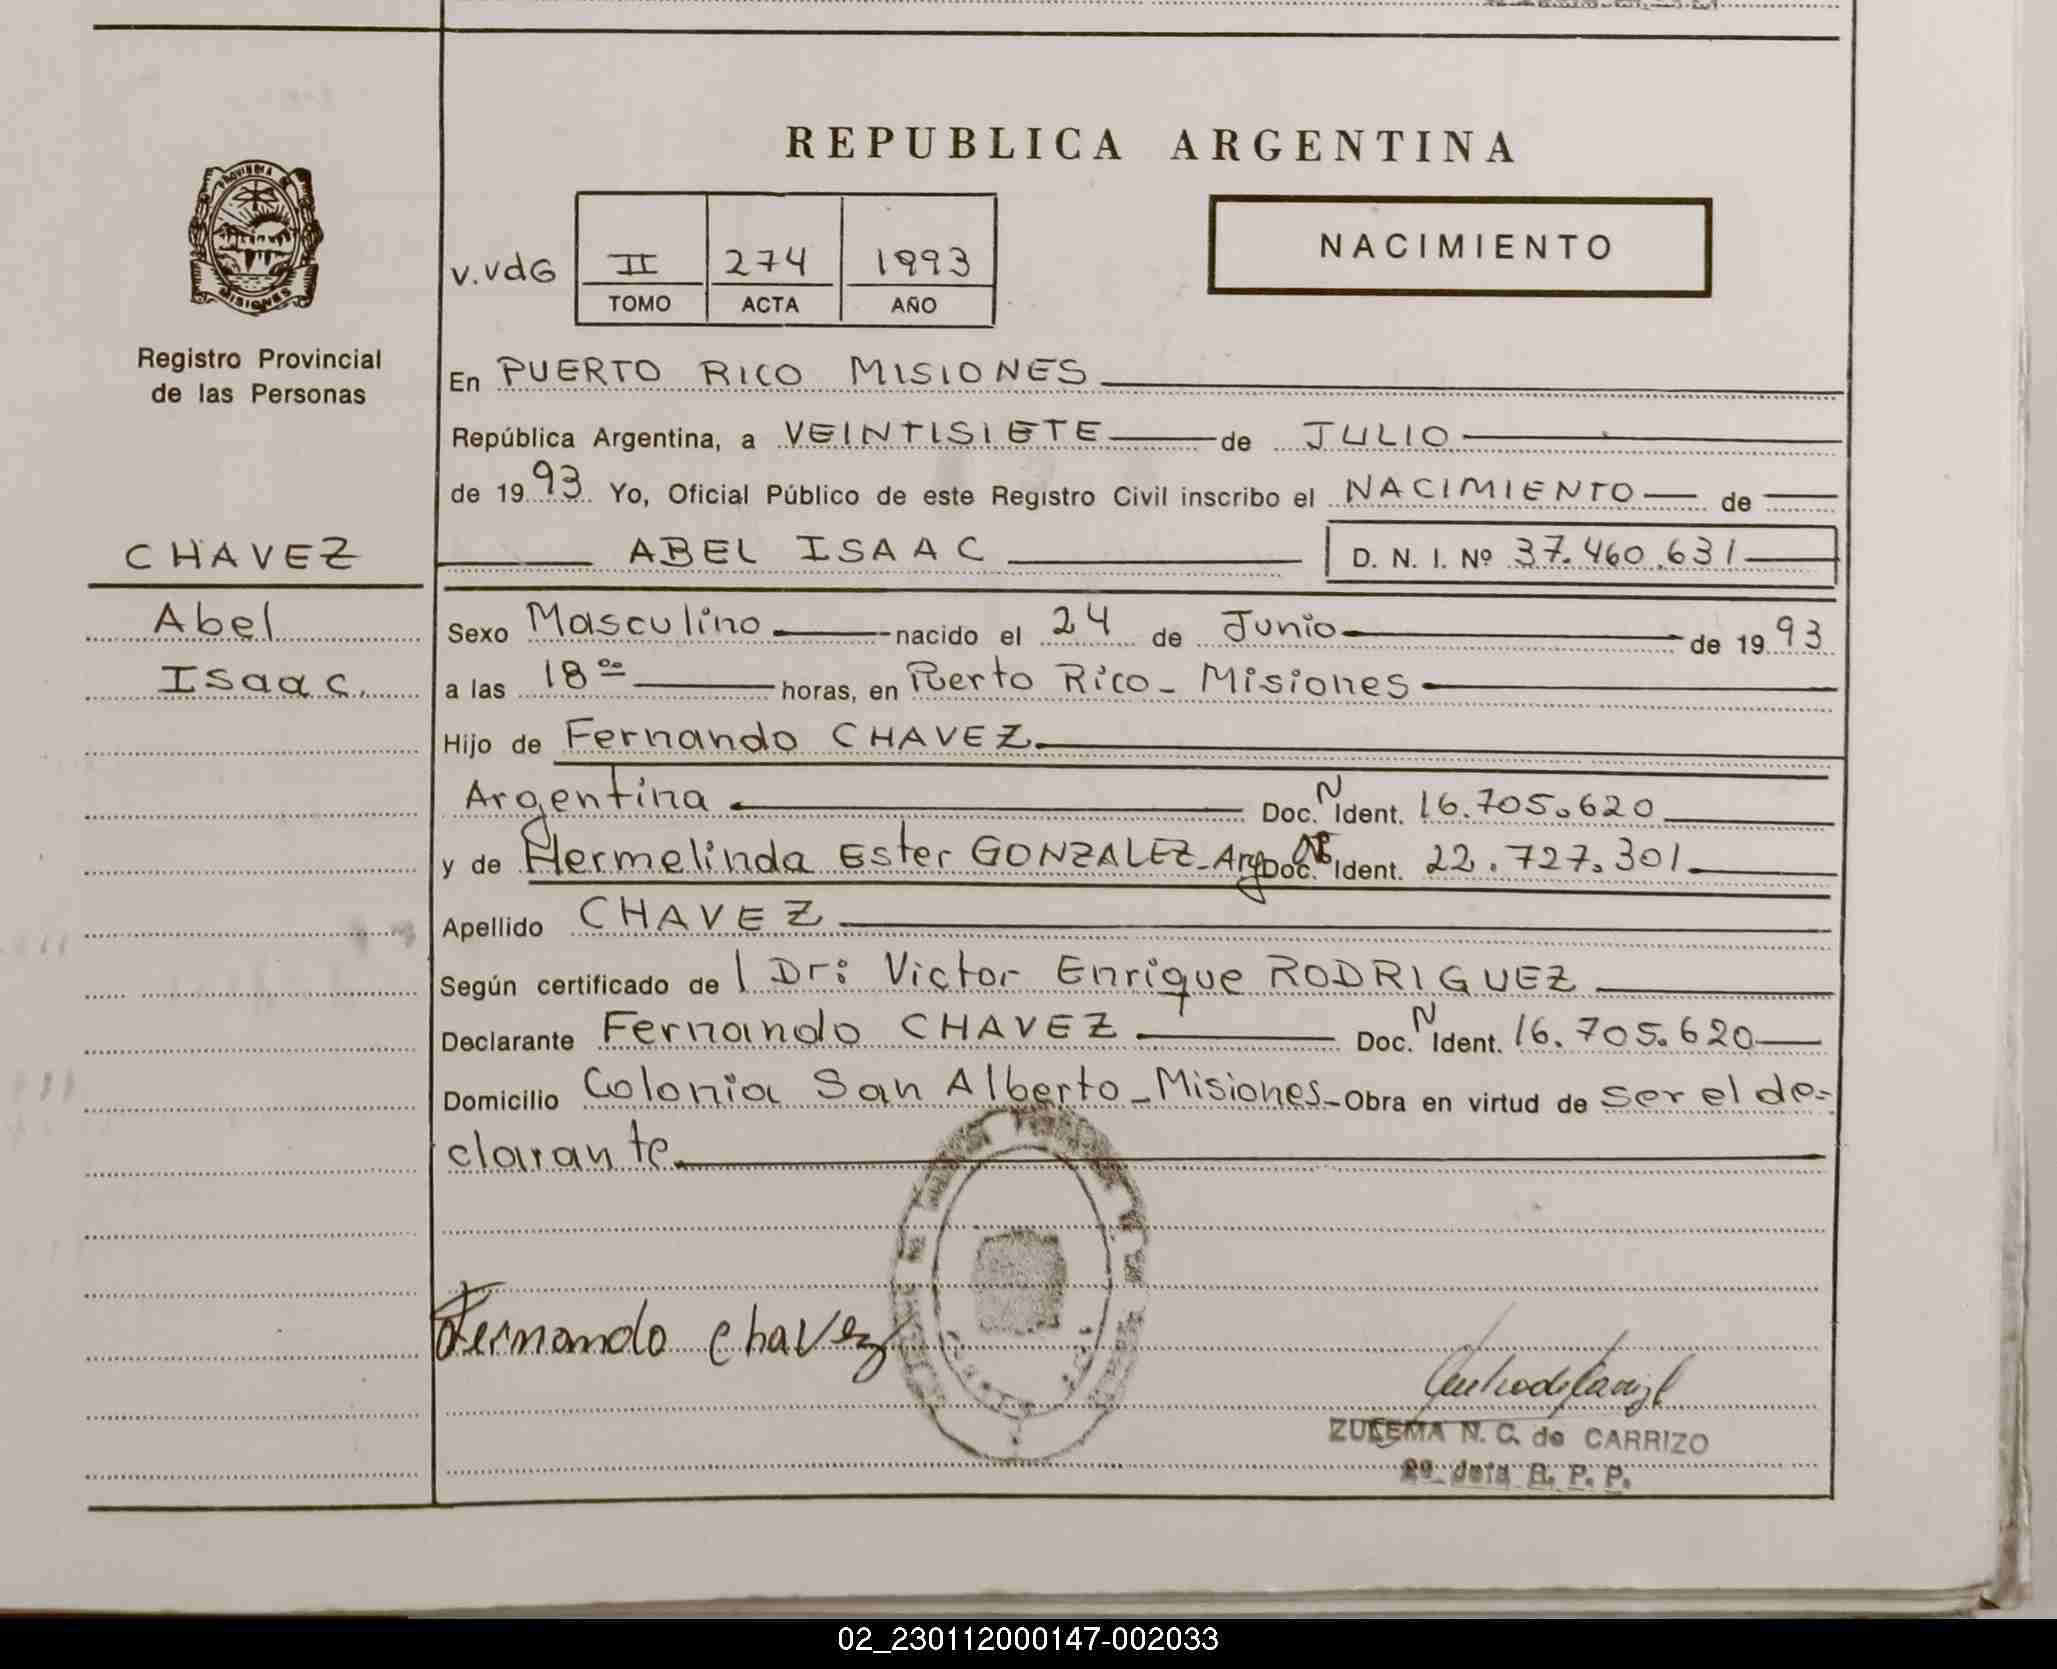 REPUBLICA ARGENTINA
PROVINCIA DE
MISIONES
Registro Provincial
de las Personas
v.vdG
II 274 1993
TOMO ACTA AÑO
NACIMIENTO
En PUERTO RICO MISIONES
República Argentina, a VEINTISIETE de JULIO
de 1993 Yo, Oficial Público de este Registro Civil inscribo el NACIMIENTO de
CHAVEZ
ABEL ISAAC D. N. I. Nº 37.460.631
Abel
Isaac.
Sexo Masculino nacido el 24 de Junio de 1993
a las 18 00 horas, en Puerto Rico - Misiones
Hijo de Fernando CHAVEZ.
Argentina Doc. N Ident. 16.705.620
y de Hermelinda Ester GONZALEZ - Arg Doc. Ident. 22.727.301
Apellido CHAVEZ
Según certificado de l Dr: Victor Enrique RODRIGUEZ
Declarante Fernando CHAVEZ Doc. N Ident. 16.705.620
Domicilio Colonia San Alberto - Misiones - Obra en virtud de ser el de-
clarante
Fernando chavez
ZULEMA N. C. de CARRIZO
R. P. P.
02_230112000147-002033